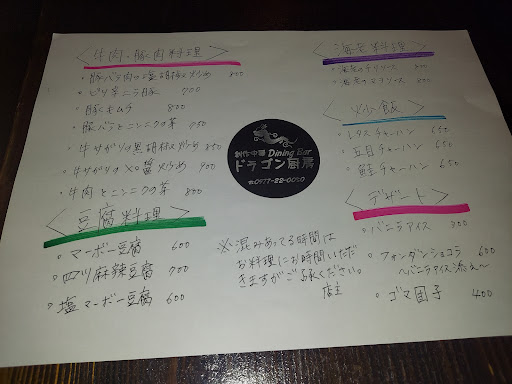 牛肉・豚肉料理
・豚バラ肉の塩胡椒炒め 800
・ピリ辛ニラ豚 700
・豚キムチ 800
・豚バラとニンニクの芽 750
・牛サガリの黒胡椒炒め 850
・牛サガリのXO醤炒め 900
・牛肉とニンニクの芽 800
豆腐料理
・マーボー豆腐 600
・四川麻辣豆腐 700
・塩マーボー豆腐 600
創作中華 Dining Bar
ドラゴン厨房
☎0977-22-0030
※混みあってる時間は
お料理にお時間いただ
きますがご了承ください。
店主
海老料理
・海老のチリソース 800
・海老のマヨソース 800
炒飯
・レタスチャーハン 650
・五目チャーハン 650
・鮭チャーハン 650
デザート
・バニラアイス 300
・フォンダンショコラ 600
～バニラアイス添え～
・ゴマ団子 400